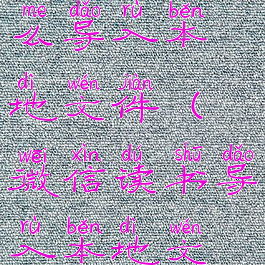 me dǎo rù běn
么导入本
dì wén jiàn
地文件（
wēi xìn dú shū dǎo
微信读书导
rù běn dì wén
入本地文